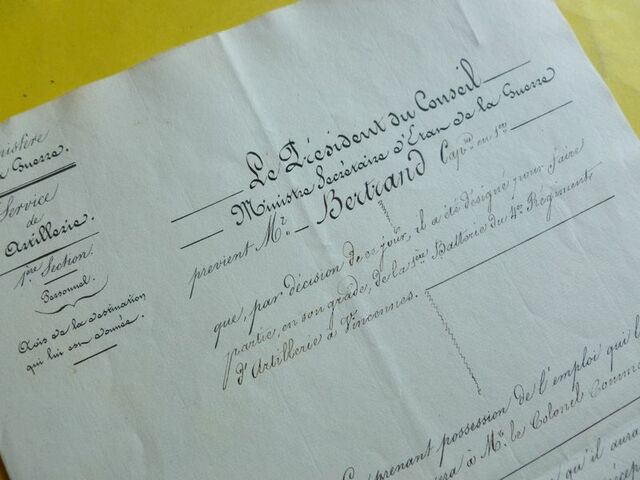 nistère
Guerre.
Service
de
Artillerie.
1ère Section.
Personnel.
Avis de la destination
qui lui est donnée.
Le Président du Conseil
Ministre Secrétaire d'Etat de la Guerre
prévient Mr. Bertrand Capne en 1er
que, par décision de ce jour, il a été désigné pour faire
partie, en son grade, de la 1ère Batterie du 4e Régiment
d'Artillerie à Vincennes.
prenant possession de l'emploi qui l
à Mr. le Colonel Comm
qu'il aura
récep